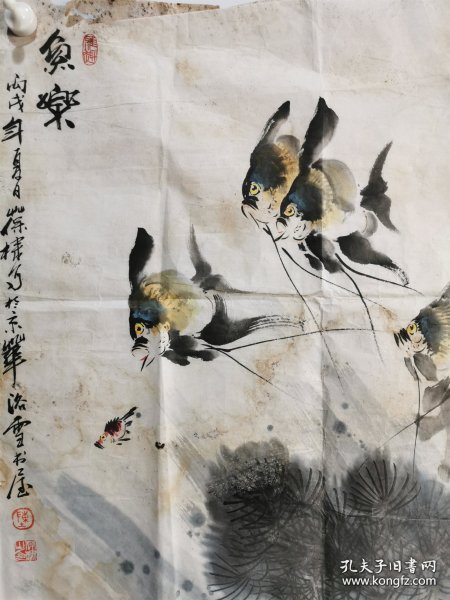 魚樂
丙戌年夏日葆棣写於京華洛雪书屋
孔夫子旧书网
www.kongfz.com